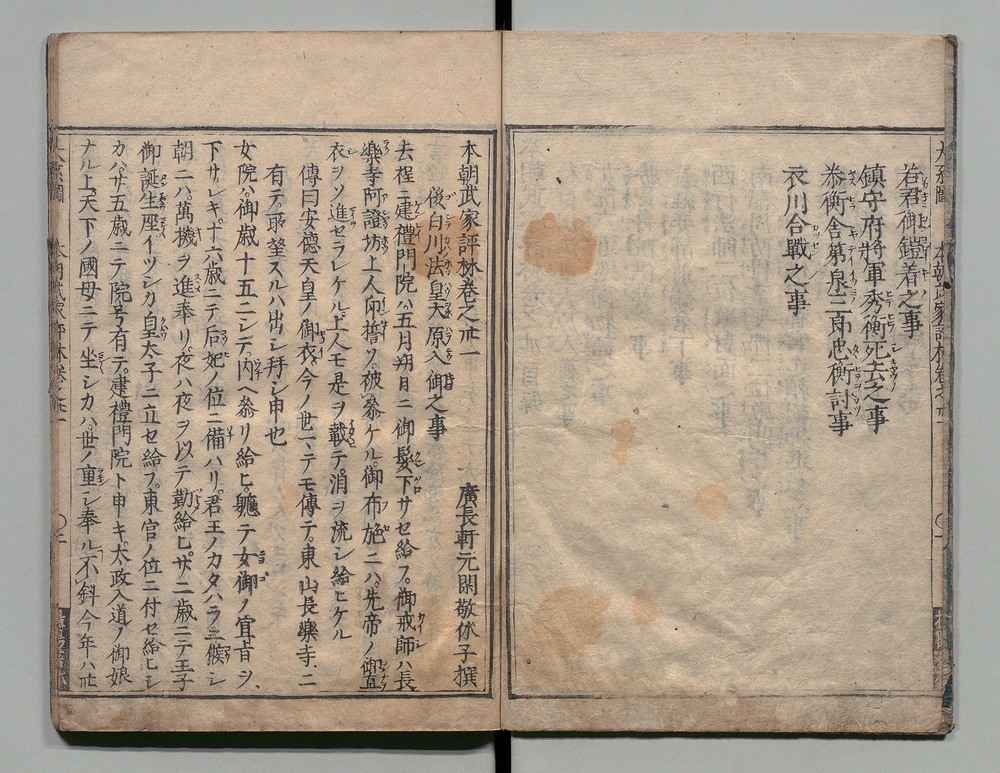 若君御鎧着之事
鎮守府將軍秀衡死去之事
恭衡舎第泉三郎忠衡討事
衣川合戰之事
本朝武家評林卷之卅一
廣長軒元閑敬休子撰
後白川法皇大原入御之事
去程ニ建禮門院ハ五月朔日ニ御髮下サセ給フ。御戒師ハ長
樂寺阿證坊上人印誓ソ。被參ケル。御布施ニハ。先帝ノ御直
衣ヲソ進セラレケル。上人モ是ヲ載テ。消ヲ流シ給ヒケル
傳曰安德天皇ノ御衣。今ノ世ニテモ傳テ。東山長樂寺ニ
有テ。所望スルハ出シ拜シ申也
女院ハ。御歲十五ニシテ。内ヘ參リ給ヒ。軈テ女御ノ宣旨ヲ
下サレキ。十六歲ニテ后妃ノ位ニ備ハリ。君王ノカタハラニ候シ
朝ニハ。萬機ヲ進奉リ。夜ハ夜ヲ以テ勤給ヒ。廿二歲ニテ王子
御誕生座。イツシカ皇太子ニ立セ給フ。東宮ノ位ニ付セ給ヒシ
カハ。廿五歲ニテ院号有テ。建禮門院ト申キ。太政入道ノ御娘
ナル上。天下ノ國母ニテ坐シカハ。世ノ重シ奉ル不斜今年ハ卅